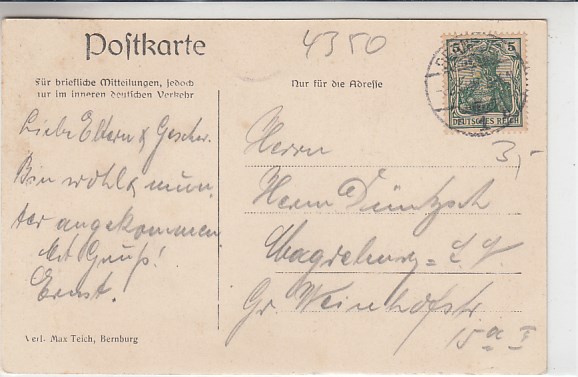 Postkarte
4350
Für briefliche Mitteilungen, jedoch
nur im inneren deutschen Verkehr
Nur für die Adresse
5 5
DEUTSCHES REICH
3,-
Liebe Eltern & Geschw.
Bin wohl & mun
ter angekommen
Mit Gruß!
Ernst.
Herrn
Herm Düntzsch
Magdeburg =
Gr. Weinhofstr.
15 a I
Verl. Max Teich, Bernburg